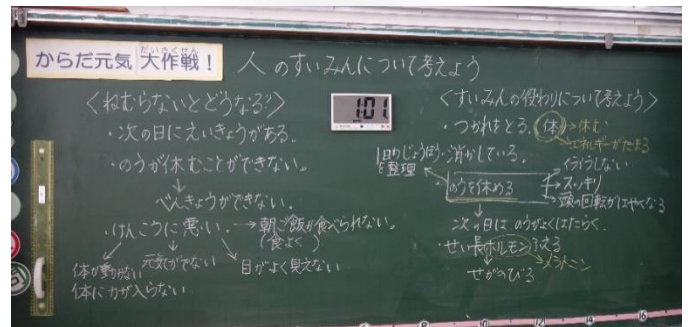 からだ元気 大作戦！
だいさくせん
人のすいみんについて考えよう
＜ねむらないとどうなる？＞
・次の日にえいきょうがある。
・のうが休むことができない。
↓
べんきょうができない。
・けんこうに悪い。→朝ご飯が食べられない。
（食よく）
体が動かない
元気がでない
目がよく見えない
体に力が入らない
1:01
＜すいみんの役わりについて考えよう＞
・つかれをとる。体→休む
エネルギーがたまる
1日のじょうほう
を整理
・消かしている。
のうを休める
イライラしない
スッキリ
頭の回転がはやくなる
↓
次の日はのうがよくはたらく。
・せい長ホルモンふえる
メラトニン
↓
せがのびる
8
10
12
14
16